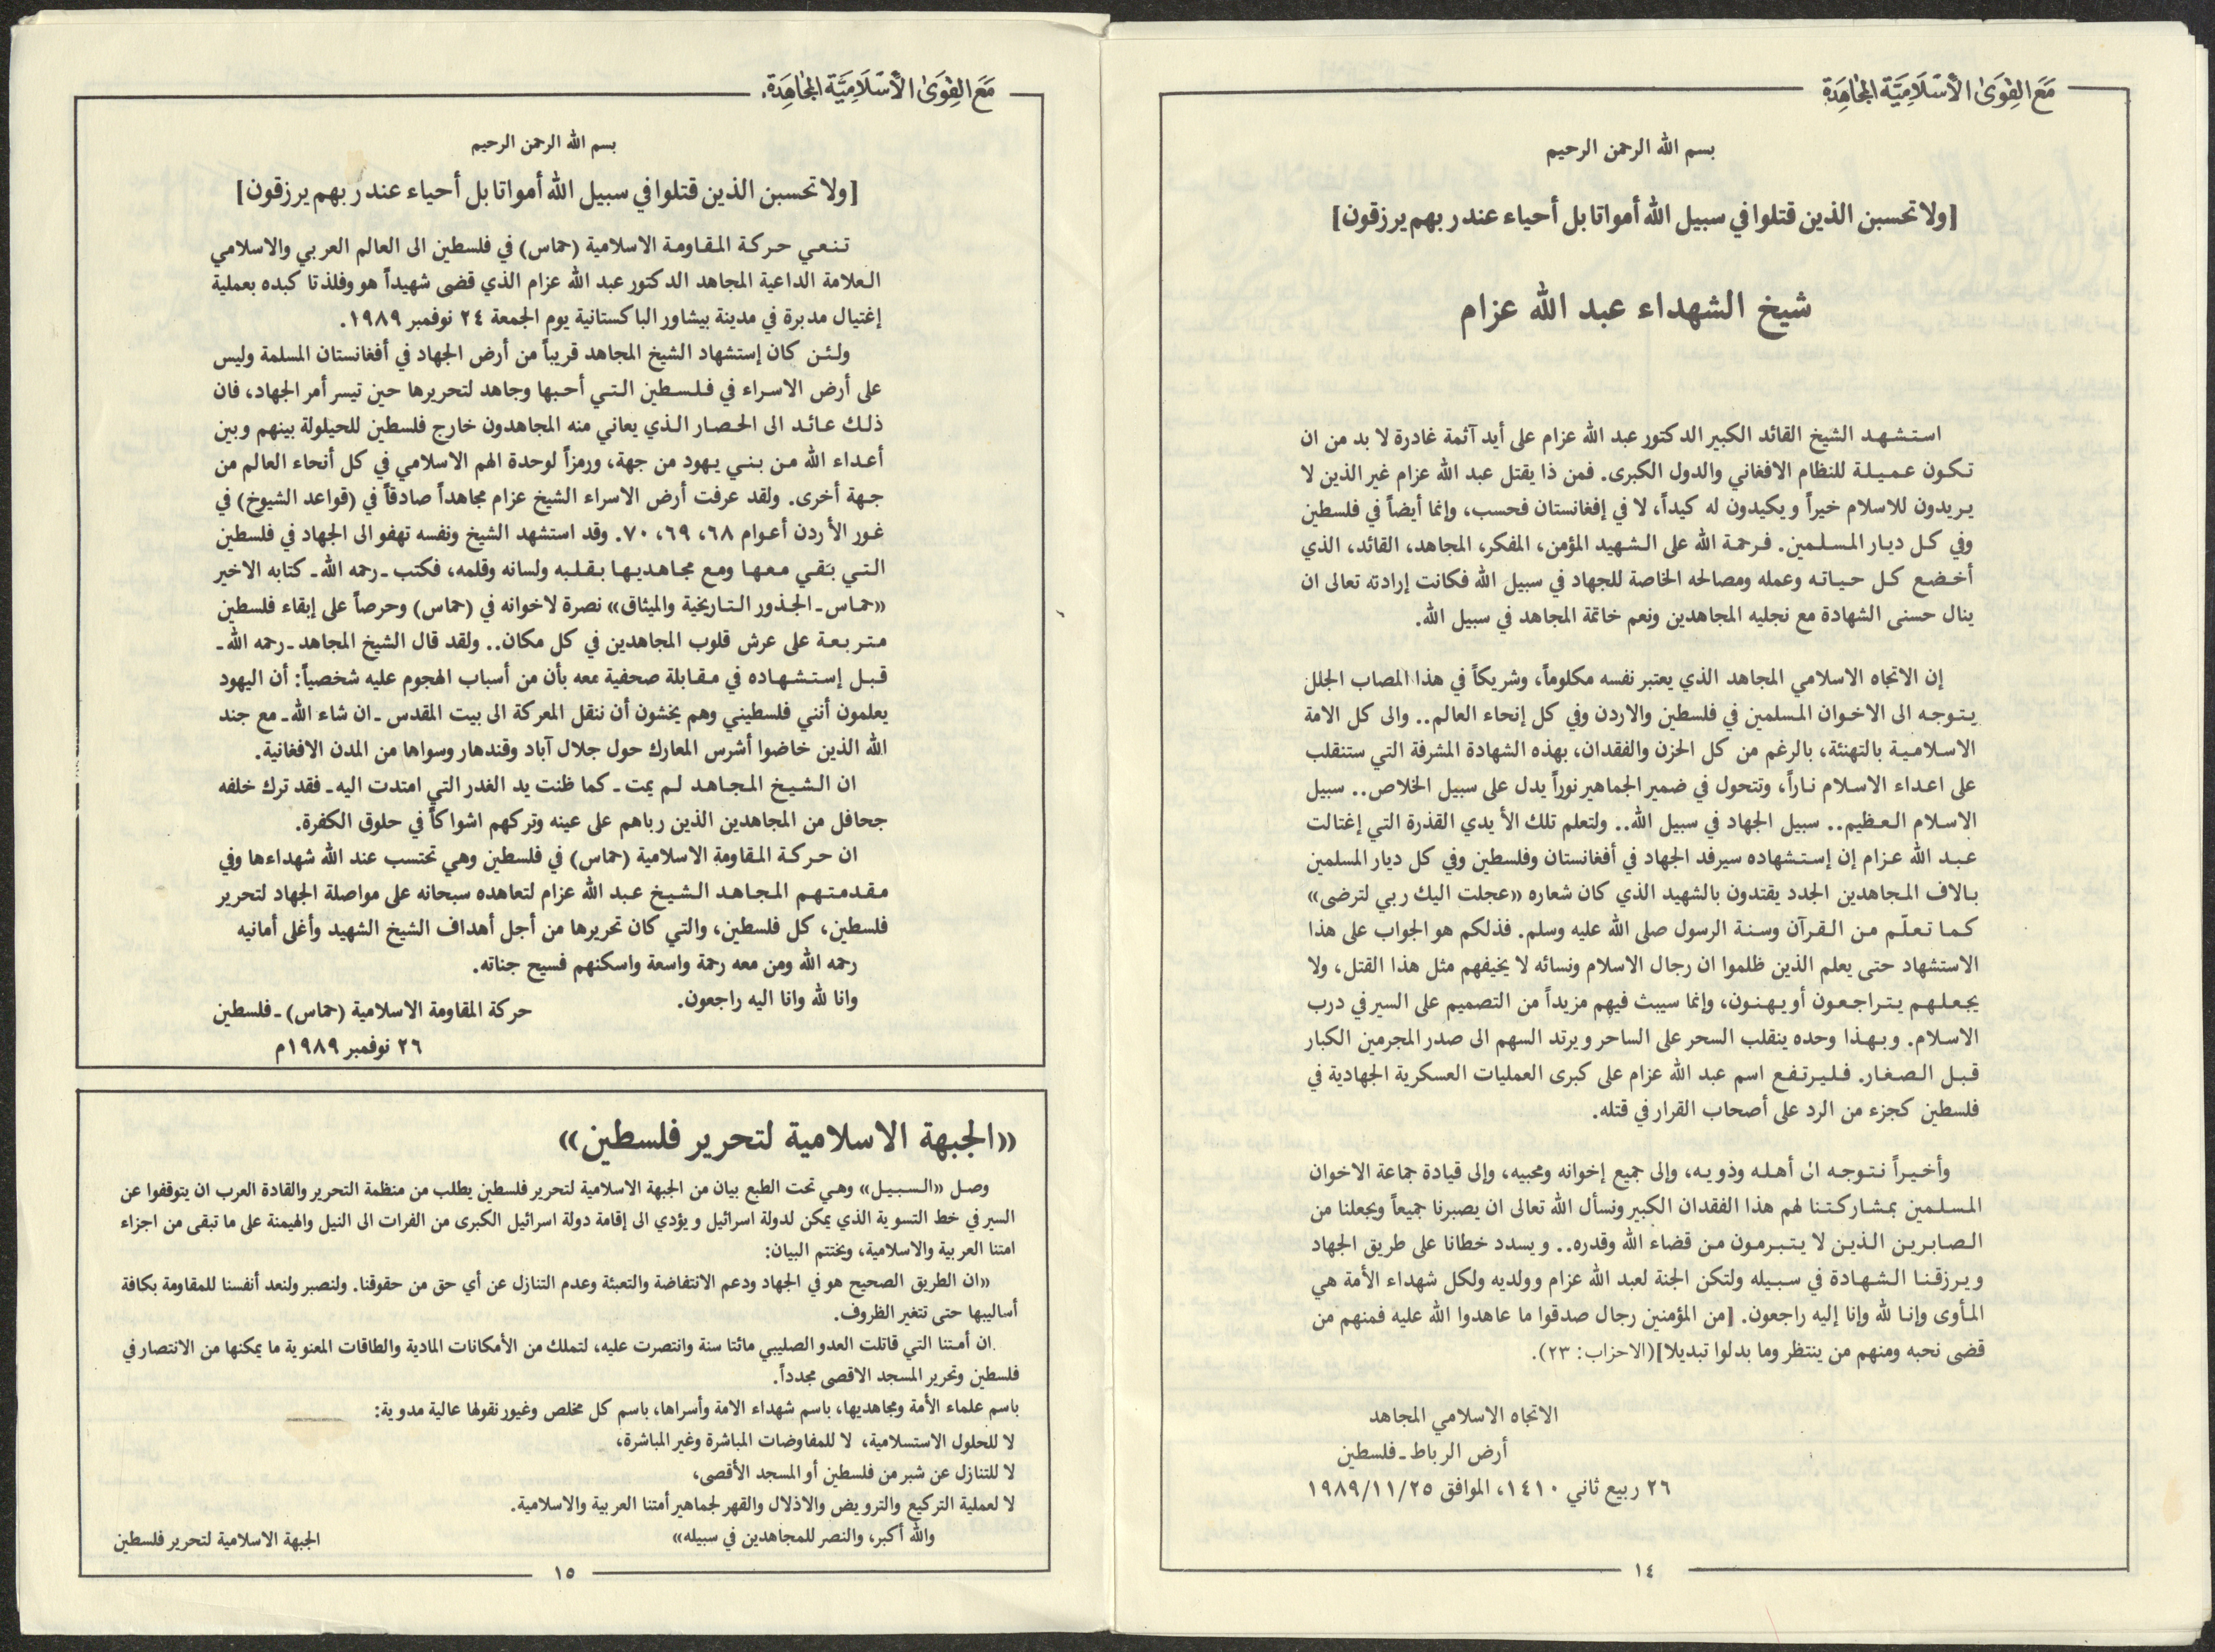 مع القوى الاسلامية المجاهدة
بسم الله الرحمن الرحيم
[ولا تحسبن الذين قتلوا في سبيل الله أمواتا بل أحياء عند ربهم يرزقون]
شيخ الشهداء عبد الله عزام
استشهد الشيخ القائد الكبير الدكتور عبد الله عزام على أيد آثمة غادرة لا بد من ان
تكون عميلة للنظام الافغاني والدول الكبرى. فمن ذا يقتل عبد الله عزام غير الذين لا
يريدون للاسلام خيراً ويكيدون له كيداً، لا في إفغانستان فحسب، وإنما أيضاً في فلسطين
وفي كل ديار المسلمين. فرحمة الله على الشهيد المؤمن، المفكر، المجاهد، القائد، الذي
أخضع كل حياته وعمله ومصالحه الخاصة للجهاد في سبيل الله فكانت إرادته تعالى ان
ينال حسنى الشهادة مع نجليه المجاهدين ونعم خاتمة المجاهد في سبيل الله.
إن الاتجاه الاسلامي المجاهد الذي يعتبر نفسه مكلوماً، وشريكاً في هذا المصاب الجلل
يتوجه الى الاخوان المسلمين في فلسطين والاردن وفي كل إنحاء العالم.. والى كل الامة
الاسلامية بالتهنئة، بالرغم من كل الحزن والفقدان، بهذه الشهادة المشرفة التي ستنقلب
على اعداء الاسلام ناراً، وتتحول في ضمير الجماهير نوراً يدل على سبيل الخلاص.. سبيل
الاسلام العظيم.. سبيل الجهاد في سبيل الله.. ولتعلم تلك الأيدي القذرة التي إغتالت
عبد الله عزام إن إستشهاده سيرفد الجهاد في أفغانستان وفلسطين وفي كل ديار المسلمين
بالاف المجاهدين الجدد يقتدون بالشهيد الذي كان شعاره «عجلت اليك ربي لترضى»
كما تعلّم من القرآن وسنة الرسول صلى الله عليه وسلم. فذلكم هو الجواب على هذا
الاستشهاد حتى يعلم الذين ظلموا ان رجال الاسلام ونسائه لا يخيفهم مثل هذا القتل، ولا
يجعلهم يتراجعون أو يهنون، وإنما سيبث فيهم مزيداً من التصميم على السير في درب
الاسلام. وبهذا وحده ينقلب السحر على الساحر ويرتد السهم الى صدر المجرمين الكبار
قبل الصغار. فليرتفع اسم عبد الله عزام على كبرى العمليات العسكرية الجهادية في
فلسطين كجزء من الرد على أصحاب القرار في قتله.
وأخيراً نتوجه الى أهله وذويه، وإلى جميع إخوانه ومحبيه، وإلى قيادة جماعة الاخوان
المسلمين بمشاركتنا لهم هذا الفقدان الكبير ونسأل الله تعالى ان يصبرنا جميعاً ويجعلنا من
الصابرين الذين لا يتبرمون من قضاء الله وقدره.. ويسدد خطانا على طريق الجهاد
ويرزقنا الشهادة في سبيله ولتكن الجنة لعبد الله عزام وولديه ولكل شهداء الأمة هي
المأوى وإنا لله وإنا إليه راجعون. [من المؤمنين رجال صدقوا ما عاهدوا الله عليه فمنهم من
قضى نحبه ومنهم من ينتظر وما بدلوا تبديلا](الاحزاب: ٢٣).
الاتجاه الاسلامي المجاهد
أرض الرباط ـ فلسطين
٢٦ ربيع ثاني ١٤١٠، الموافق ١٩٨٩/١١/٢٥
١٤
مع القوى الاسلامية المجاهدة.
بسم الله الرحمن الرحيم
[ولا تحسبن الذين قتلوا في سبيل الله أمواتا بل أحياء عند ربهم يرزقون]
تنعي حركة المقاومة الاسلامية (حماس) في فلسطين الى العالم العربي والاسلامي
العلامة الداعية المجاهد الدكتور عبد الله عزام الذي قضى شهيداً هو وفلذتا كبده بعملية
إغتيال مدبرة في مدينة بيشاور الباكستانية يوم الجمعة ٢٤ نوفمبر ١٩٨٩.
ولئن كان إستشهاد الشيخ المجاهد قريباً من أرض الجهاد في أفغانستان المسلمة وليس
على أرض الاسراء في فلسطين التي أحبها وجاهد لتحريرها حين تيسر أمر الجهاد، فان
ذلك عائد الى الحصار الذي يعاني منه المجاهدون خارج فلسطين للحيلولة بينهم وبين
أعداء الله من بني يهود من جهة، ورمزاً لوحدة الهم الاسلامي في كل أنحاء العالم من
جهة أخرى. ولقد عرفت أرض الاسراء الشيخ عزام مجاهداً صادقاً في (قواعد الشيوخ) في
غور الأردن أعوام ٦٨، ٦٩، ٧٠. وقد استشهد الشيخ ونفسه تهفو الى الجهاد في فلسطين
التي بقي معها ومع مجاهديها بقلبه ولسانه وقلمه، فكتب ـ رحمه الله ـ كتابه الاخير
«حماس ـ الجذور التاريخية والميثاق» نصرة لاخوانه في (حماس) وحرصاً على إبقاء فلسطين
متربعة على عرش قلوب المجاهدين في كل مكان.. ولقد قال الشيخ المجاهد ـ رحمه الله ـ
قبل إستشهاده في مقابلة صحفية معه بأن من أسباب الهجوم عليه شخصياً: أن اليهود
يعلمون أنني فلسطيني وهم يخشون أن ننقل المعركة الى بيت المقدس ـ ان شاء الله ـ مع جند
الله الذين خاضوا أشرس المعارك حول جلال آباد وقندهار وسواها من المدن الافغانية.
ان الشيخ المجاهد لم يمت ـ كما ظنت يد الغدر التي امتدت اليه ـ فقد ترك خلفه
جحافل من المجاهدين الذين رباهم على عينه وتركهم اشواكاً في حلوق الكفرة.
ان حركة المقاومة الاسلامية (حماس) في فلسطين وهي تحتسب عند الله شهداءها وفي
مقدمتهم المجاهد الشيخ عبد الله عزام لتعاهده سبحانه على مواصلة الجهاد لتحرير
فلسطين، كل فلسطين، والتي كان تحريرها من أجل أهداف الشيخ الشهيد وأغلى أمانيه
رحمه الله ومن معه رحمة واسعة واسكنهم فسيح جناته.
وانا لله وانا اليه راجعون.
حركة المقاومة الاسلامية (حماس) ـ فلسطين
٢٦ نوفمبر ١٩٨٩م
«الجبهة الاسلامية لتحرير فلسطين»
وصل «السبيل» وهي تحت الطبع بيان من الجبهة الاسلامية لتحرير فلسطين يطلب من منظمة التحرير والقادة العرب ان يتوقفوا عن
السير في خط التسوية الذي يمكن لدولة اسرائيل ويؤدي الى إقامة دولة اسرائيل الكبرى من الفرات الى النيل والهيمنة على ما تبقى من اجزاء
امتنا العربية والاسلامية، ويختتم البيان:
«ان الطريق الصحيح هو في الجهاد ودعم الانتفاضة والتعبئة وعدم التنازل عن أي حق من حقوقنا. ولنصبر ولنعد أنفسنا للمقاومة بكافة
أساليبها حتى تتغير الظروف.
ان أمتنا التي قاتلت العدو الصليبي مائتا سنة وانتصرت عليه، لتملك من الأمكانات المادية والطاقات المعنوية ما يمكنها من الانتصار في
فلسطين وتحرير المسجد الاقصى مجدداً.
باسم علماء الأمة ومجاهديها، باسم شهداء الامة وأسراها، باسم كل مخلص وغيور نقولها عالية مدوية:
لا للحلول الاستسلامية، لا للمفاوضات المباشرة وغير المباشرة،
لا للتنازل عن شبر من فلسطين أو المسجد الأقصى،
لا لعملية التركيع والترويض والاذلال والقهر لجماهير أمتنا العربية والاسلامية.
والله أكبر، والنصر للمجاهدين في سبيله»
الجبهة الاسلامية لتحرير فلسطين
١٥